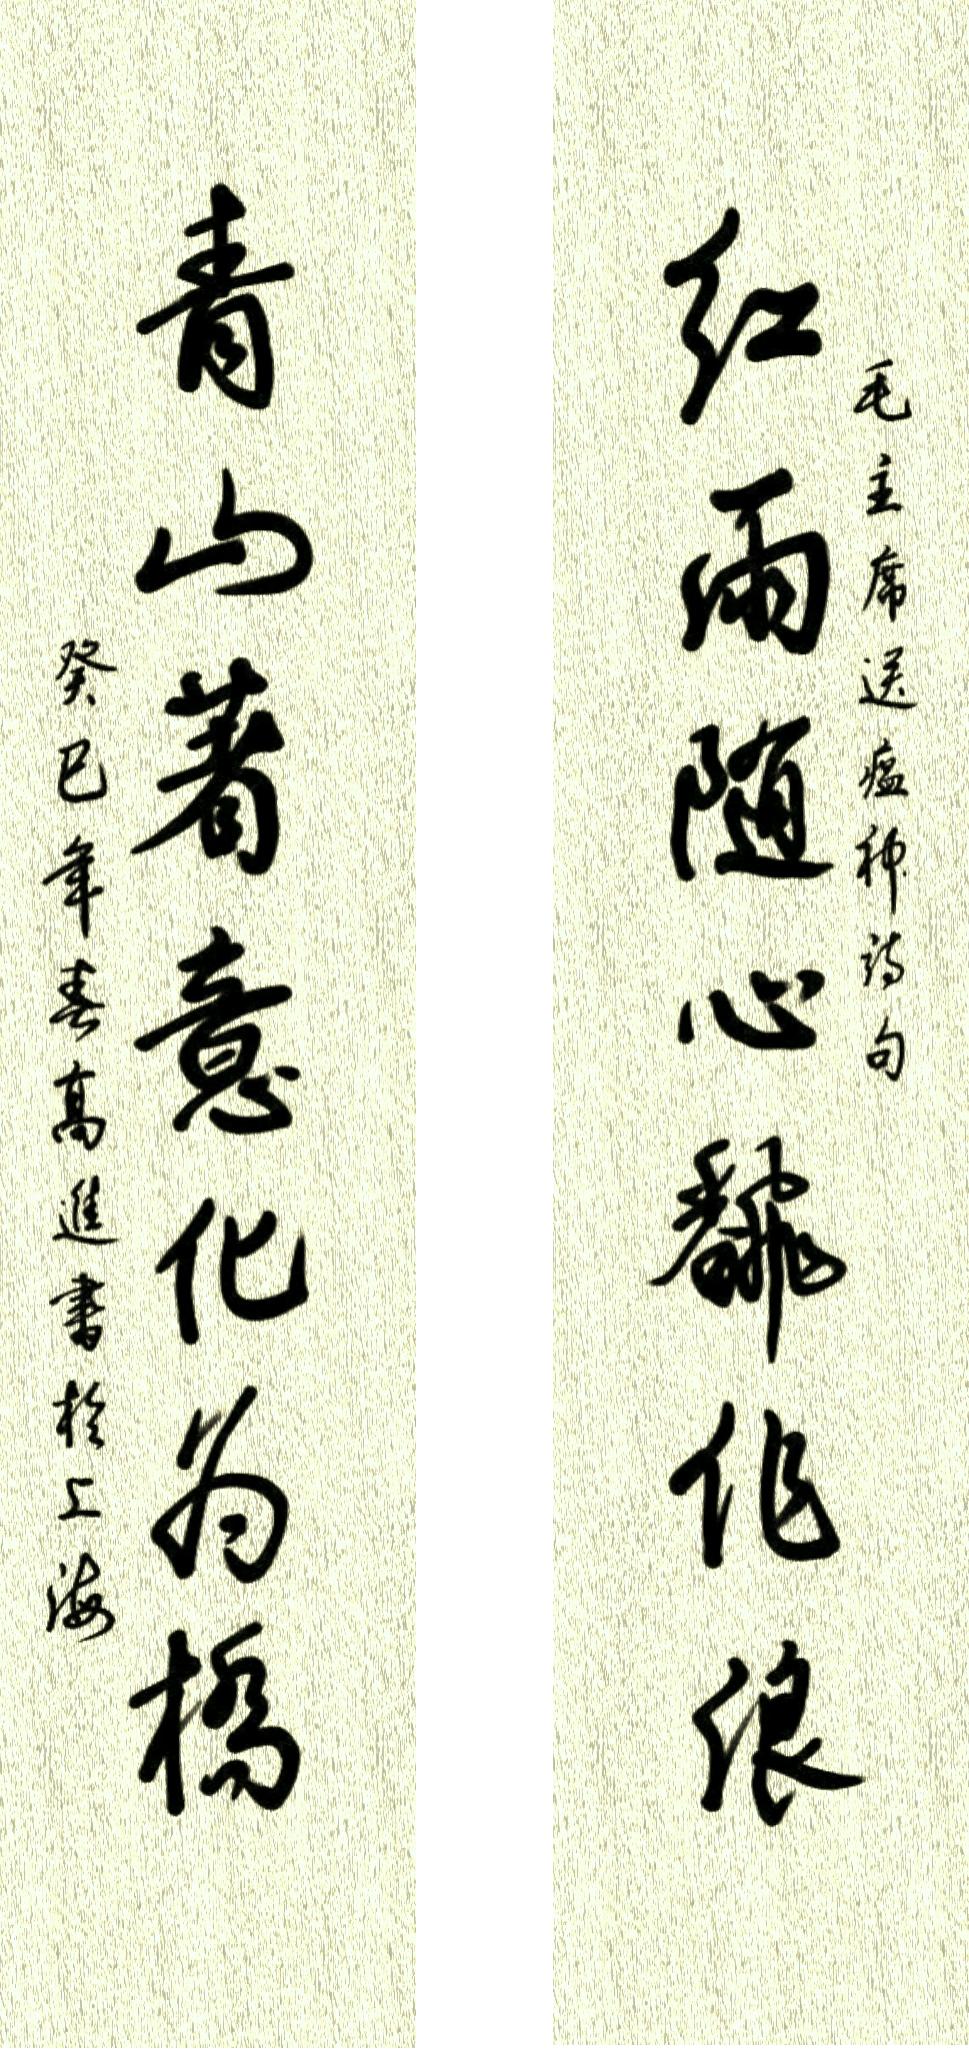 毛主席送瘟神诗句
红雨随心翻作浪
青山著意化为橋
癸巳年春高進書於上海